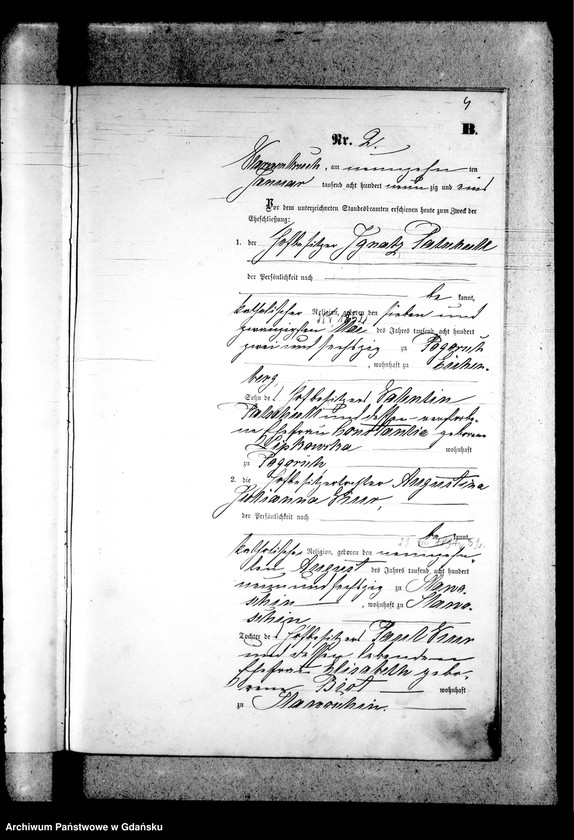 4
B.
Nr. 2.
am neunzehn ten
Januar tausend acht hundert neun zig und eins
Vor dem unterzeichneten Standesbeamten erschienen heute zum Zweck der
Eheschließung:
1. der Hofbesitzer Ignatz
der Persönlichkeit nach
be kannt,
katholischer Religion, geboren den sieben und
zwanzigsten Mai des Jahres tausend acht hundert
zwei und sechszig zu Pogorsch
, wohnhaft zu Eichen-
berg,
Sohn des Hofbesitzers Valentin
und dessen verstorbe-
n Ehefrau Konstantia geborene
Lipkowska wohnhaft
zu Pogorsch
2. die Hofbesitzertochter Augustina
Julianna
der Persönlichkeit nach
be kannt,
katholischer Religion, geboren den neunzehn-
ten August des Jahres tausend acht hundert
neun und sechszig zu
, wohnhaft zu
Tochter des Hofbesitzers Paul
und dessen lebenden
Ehefrau Elisabeth gebo-
rene wohnhaft
zu
Archiwum Państwowe w Gdańsku